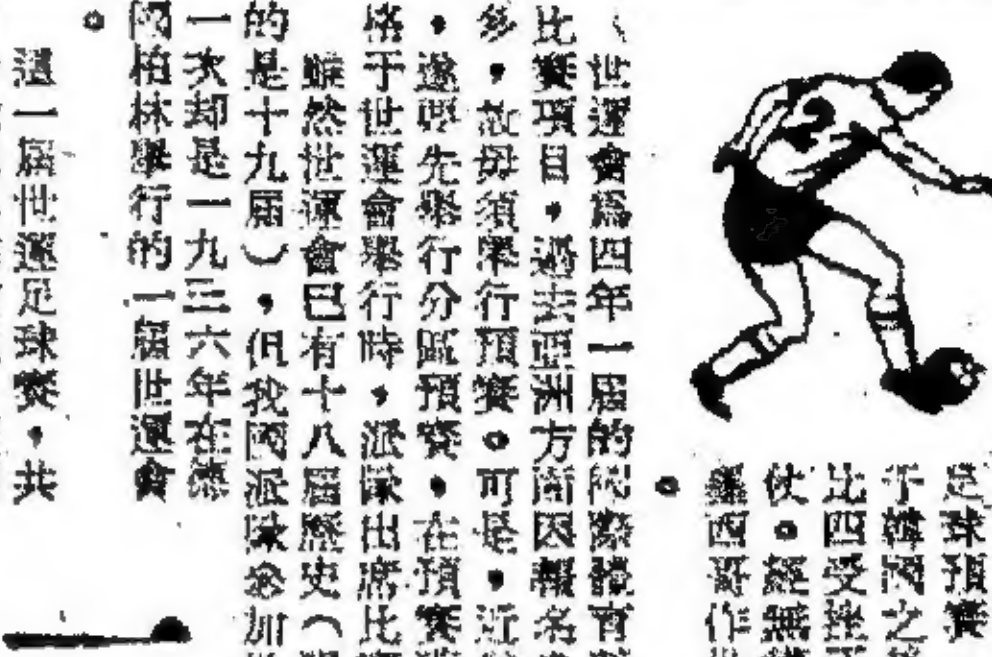 足球預賽
于韓國之
比四受挫
仗。經無
墨西哥作
。
世運會爲四年一屆的國際體育
比賽項目,過去亞洲方面因報名
多,故毋須舉行預賽。可是,近
,遂要先舉行分區預賽,在預賽
格于世運會舉行時,派隊出席比
雖然世運會已有十八屆歷史(
的是十九屆),但我國派隊參加
一次却是一九三六年在德
國柏林舉行的一屆世運會
。
這一屆世運足球賽,共